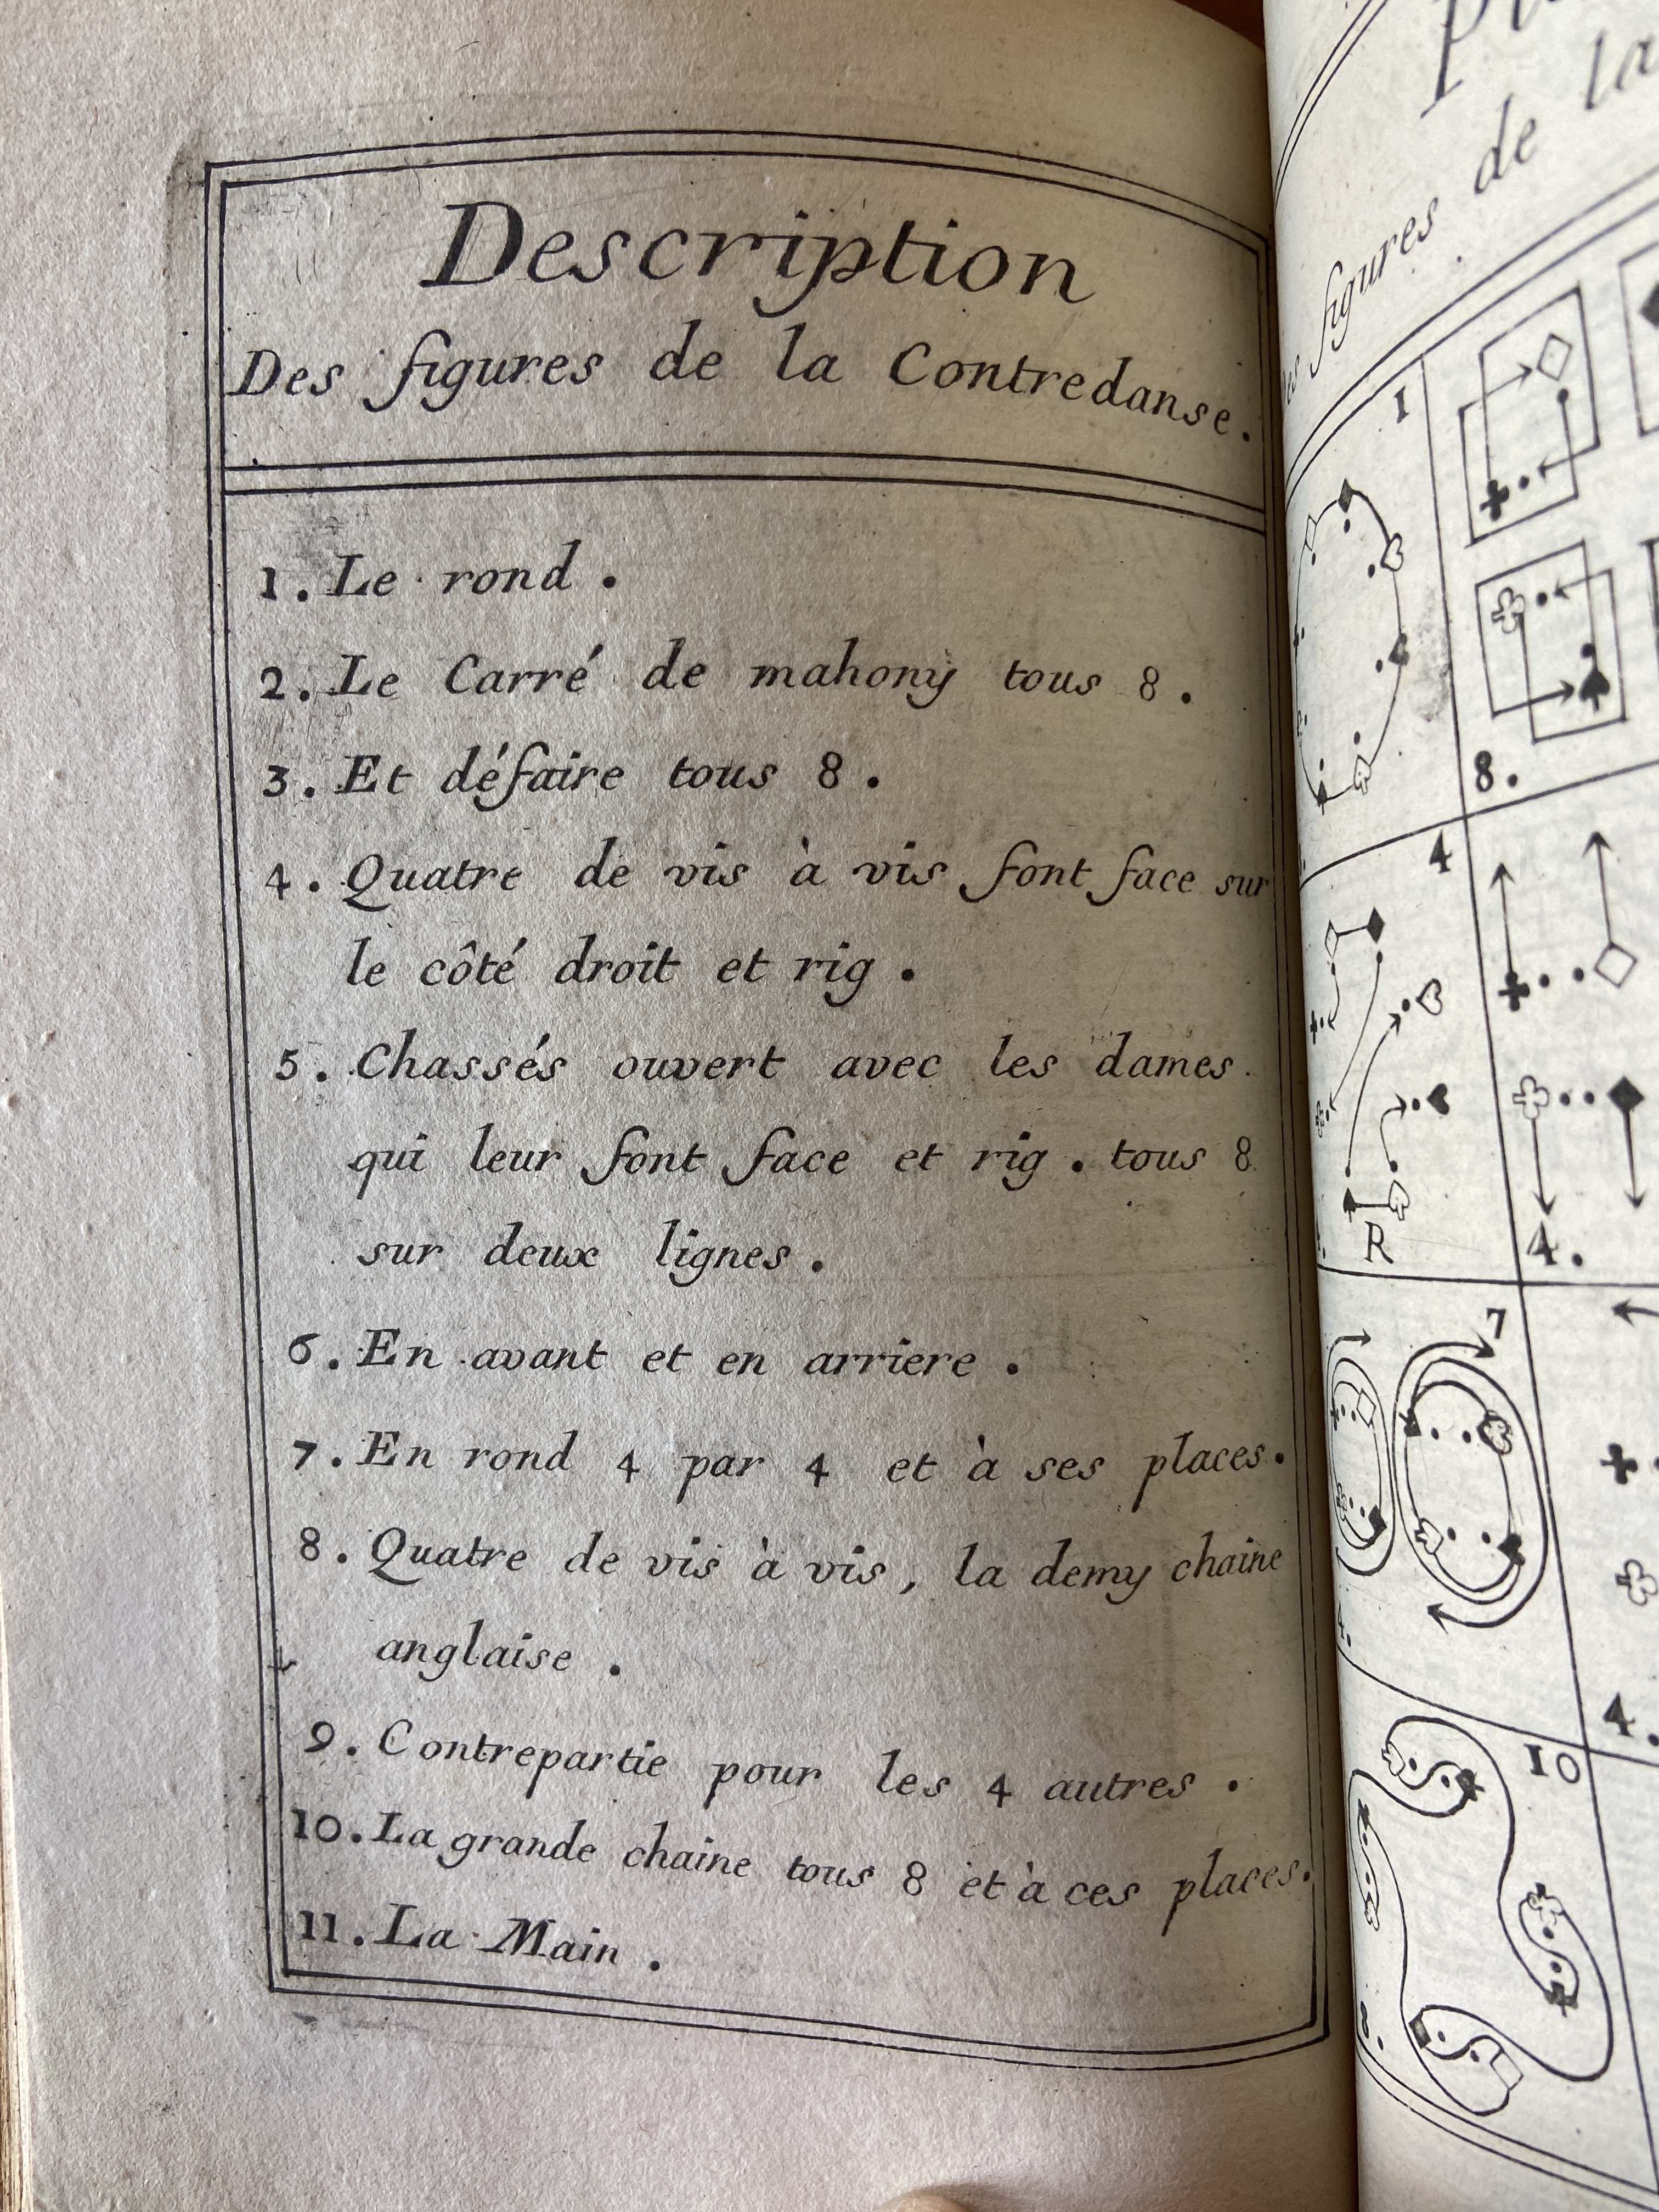 Description
Des figures de la Contredanse.
1. Le rond.
2. Le Carré de mahony tous 8.
3. Et défaire tous 8.
4. Quatre de vis à vis font face sur
le côté droit et rig.
5. Chassés ouvert avec les dames
qui leur font face et rig. tous 8
sur deux lignes.
6. En avant et en arriere.
7. En rond 4 par 4 et à ses places.
8. Quatre de vis à vis, la demy chaine
anglaise.
9. Contrepartie pour les 4 autres.
10. La grande chaine tous 8 et à ces places.
11. La Main.
figures de la
1
8.
4
R
4.
7
4.
10